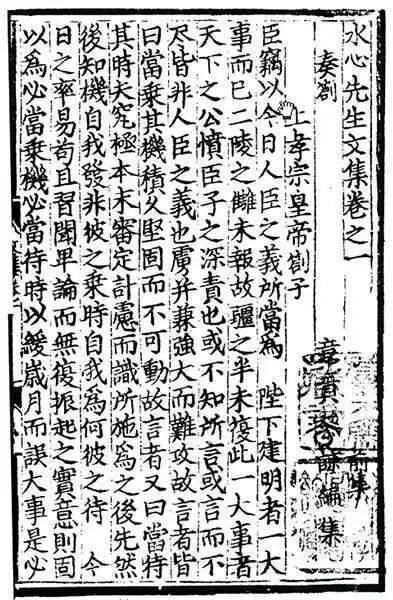 水心先生文集卷之一 前集
奏劄 章貢黎諒編集
上孝宗皇帝劄子
臣竊以今日人臣之義所當為 陛下建明者一大
事而已二陵之讎未報故疆之半未復此一大事者
天下之公憤臣子之深責也或不知所言或言而不
尽皆非人臣之義也虜并兼強大而難攻故言者皆
曰當乘其機積久堅固而不可動故言者又曰當待
其時夫究極本末審定計慮而識所施為之後先然
後知機自我發非彼之乘時自我為何彼之待 今
日之率易苟且習聞卑論而無復振起之實意則固
以為必當乘機必當待時以緩歲月而誤大事是必